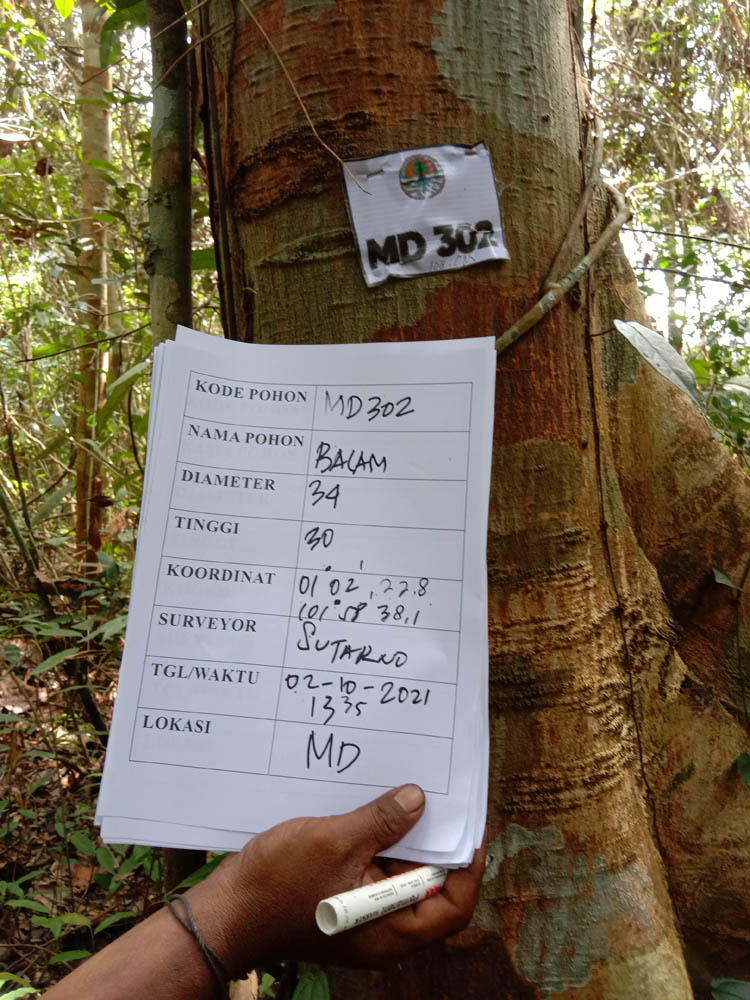 MD 302
KODE POHON MD302
NAMA POHON BALAM
DIAMETER 34
TINGGI 30
KOORDINAT 01° 02' 22.8
101° 58' 38,1
SURVEYOR SUTARNO
TGL/WAKTU 02-10-2021
1335
LOKASI MD